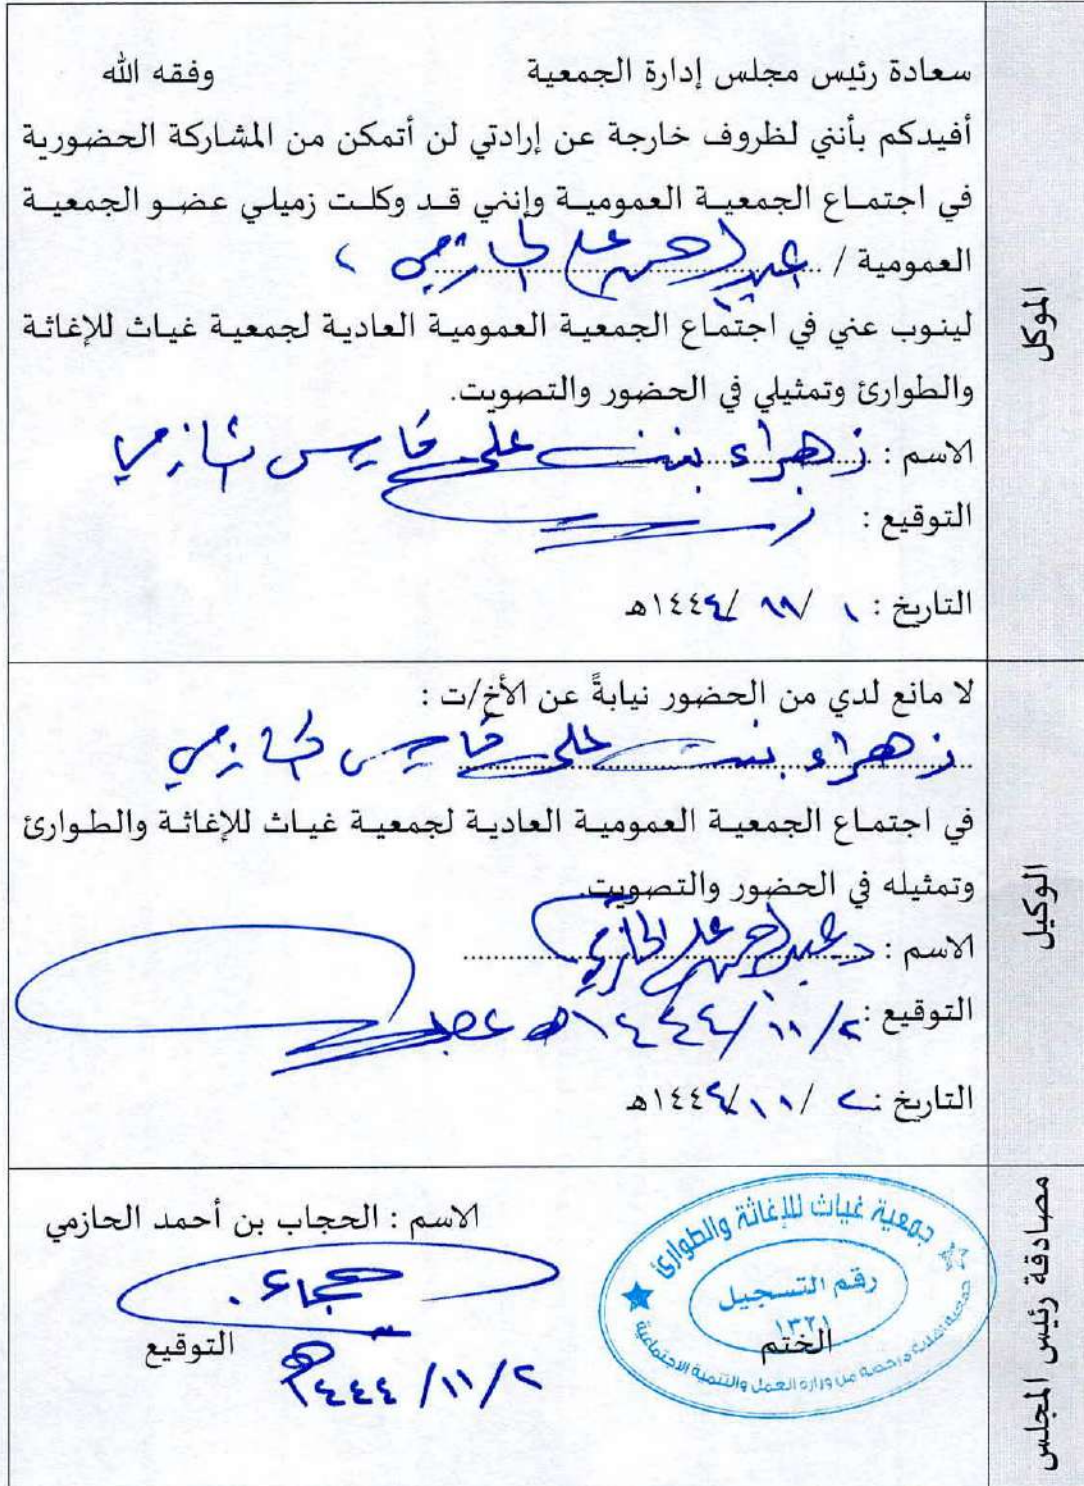 الموكل
سعادة رئيس مجلس إدارة الجمعية وفقه الله
أفيدكم بأنني لظروف خارجة عن إرادتي لن أتمكن من المشاركة الحضورية
في اجتماع الجمعية العمومية وإنني قد وكلت زميلي عضو الجمعية
العمومية / عبدالرحمن علي الحازمي ،
لينوب عني في اجتماع الجمعية العمومية العادية لجمعية غياث للإغاثة
والطوارئ وتمثيلي في الحضور والتصويت.
الاسم : زهراء بنت علي فارس الحازمي
التوقيع :
التاريخ : ١ / ١١ /١٤٤٤هـ
الوكيل
لا مانع لدي من الحضور نيابةً عن الأخ/ت :
زهراء بنت علي فارس الحازمي
في اجتماع الجمعية العمومية العادية لجمعية غياث للإغاثة والطوارئ
وتمثيله في الحضور والتصويت.
الاسم : د. عبدالرحمن علي الحازمي
التوقيع : ٢/ ١١/ ١٤٤٤هـ
التاريخ : ٢ /١١/١٤٤٤هـ
مصادقة رئيس المجلس
الاسم : الحجاب بن أحمد الحازمي
جمعية غياث للإغاثة والطوارئ
رقم التسجيل
١٣٢١
الختم
التوقيع
٢/ ١١/ ١٤٤٤هـ